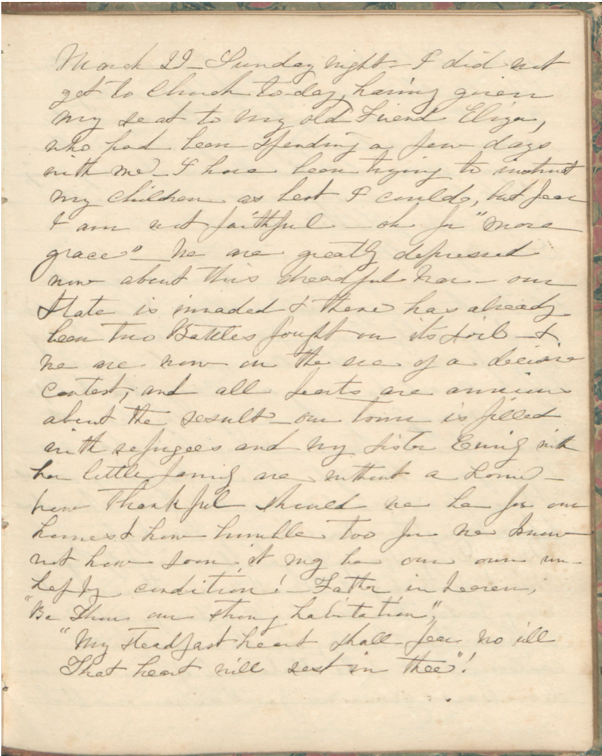 March 29 – Sunday night – I did not
get to Church to-day, having given
my seat to my old Friend Eliza,
who had been spending a few days
with me – I have been trying to instruct
my children as best I could, but fear
I am not faithful – oh for "more
grace" – We are greatly depressed
now about this dreadful War – our
State is invaded & there has already
been two Battles fought on its soil – &
we are now on the eve of a decisive
contest; and all hearts are anxious
about the result – our town is filled
with refugees and my sister Ewing with
her little family are without a home –
how thankful should we be for our
homes & how humble too for we know
not how soon it may be our own un-
happy condition! – Father in heaven,
"Be Thou our strong habitation",
"My steadfast heart shall fear no ill
That heart will rest in thee"!